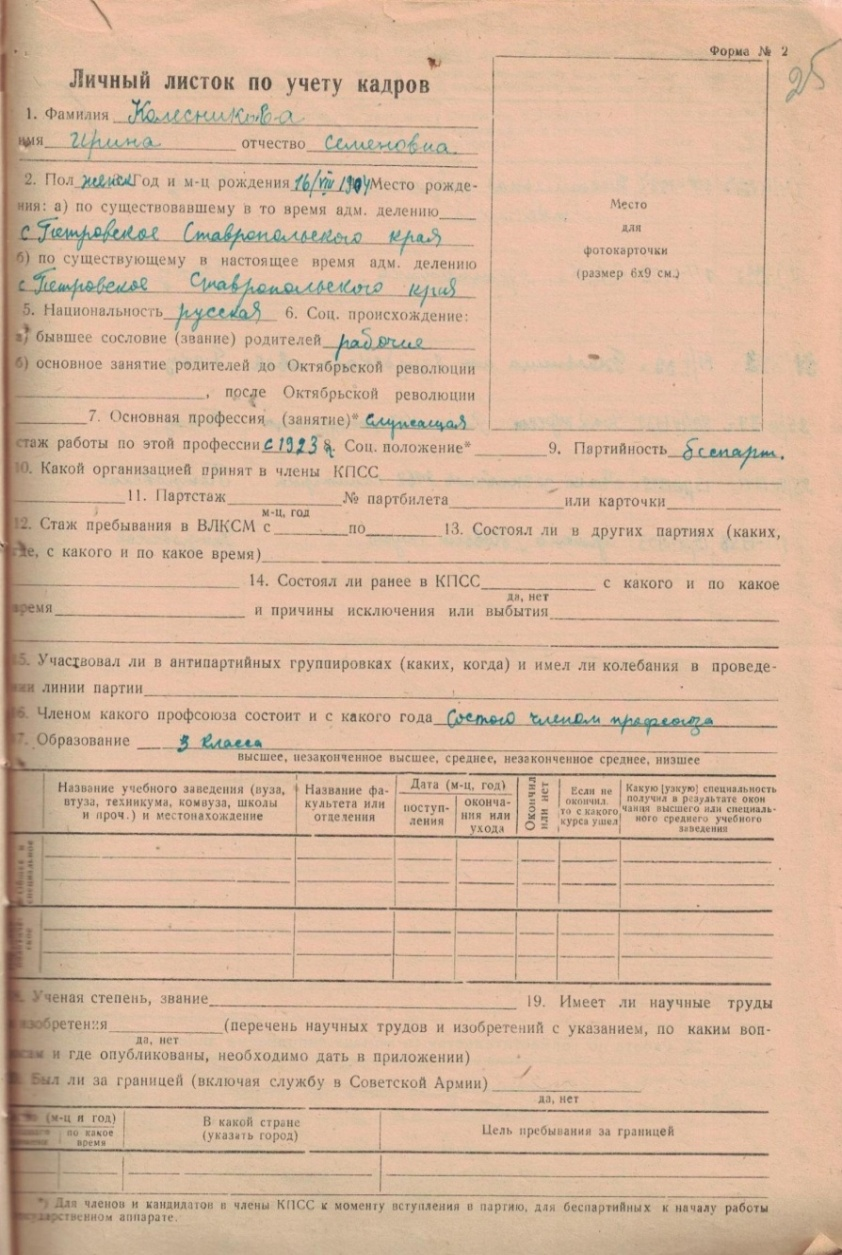 Форма № 2
25
Личный листок по учету кадров
1. Фамилия Колесникова
имя Ирина отчество Семеновна.
2. Пол женск Год и м-ц рождения 16/VIII 1904 Место рожде-
ния: а) по существовавшему в то время адм. делению
с Петровское Ставропольского края
б) по существующему в настоящее время адм. делению
с Петровское Ставропольского края
5. Национальность русская 6. Соц. происхождение:
а) бывшее сословие (звание) родителей рабочие
б) основное занятие родителей до Октябрьской революции
, после Октябрьской революции
Место
для
фотокарточки
(размер 6x9 см.)
7. Основная профессия (занятие)* служащая
стаж работы по этой профессии с 1923 8. Соц. положение* 9. Партийность беспарт.
10. Какой организацией принят в члены КПСС
11. Партстаж № партбилета или карточки
м-ц, год
12. Стаж пребывания в ВЛКСМ с по 13. Состоял ли в других партиях (каких,
где, с какого и по какое время)
14. Состоял ли ранее в КПСС с какого и по какое
да, нет
время и причины исключения или выбытия
15. Участвовал ли в антипартийных группировках (каких, когда) и имел ли колебания в проведе-
нии линии партии
16. Членом какого профсоюза состоит и с какого года Состою членом профсоюза
17. Образование 3 класса
высшее, незаконченное высшее, среднее, незаконченное среднее, низшее
Название учебного заведения (вуза, втуза, техникума, комвуза, школы и проч.) и местонахождение
Название факультета или отделения
Дата (м-ц, год)
поступ-
ления
оконча-
ния или
ухода
Окончил или нет
Если не
окончил.
то с какого
курса ушел
Какую [узкую] специальность
получил в результате окон
чания высшего или специаль-
ного среднего учебного
заведения
Общее и
специальное
Ученая степень, звание 19. Имеет ли научные труды
изобретения (перечень научных трудов и изобретений с указанием, по каким воп-
да, нет
и где опубликованы, необходимо дать в приложении)
Был ли за границей (включая службу в Советской Армии)
да, нет
(м-ц и год)
по какое
время
В какой стране
(указать город)
Цель пребывания за границей
*) Для членов и кандидатов в члены КПСС к моменту вступления в партию, для беспартийных к началу работы
государственном аппарате.